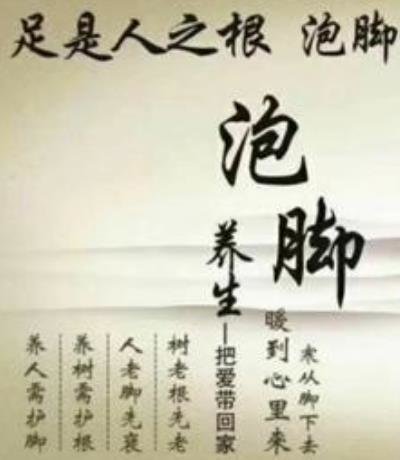 足是人之根 泡脚
泡脚
养生—把爱带回家
寒从脚下去
暖到心里来
树老根先老
人老脚先衰
养树需护根
养人需护脚